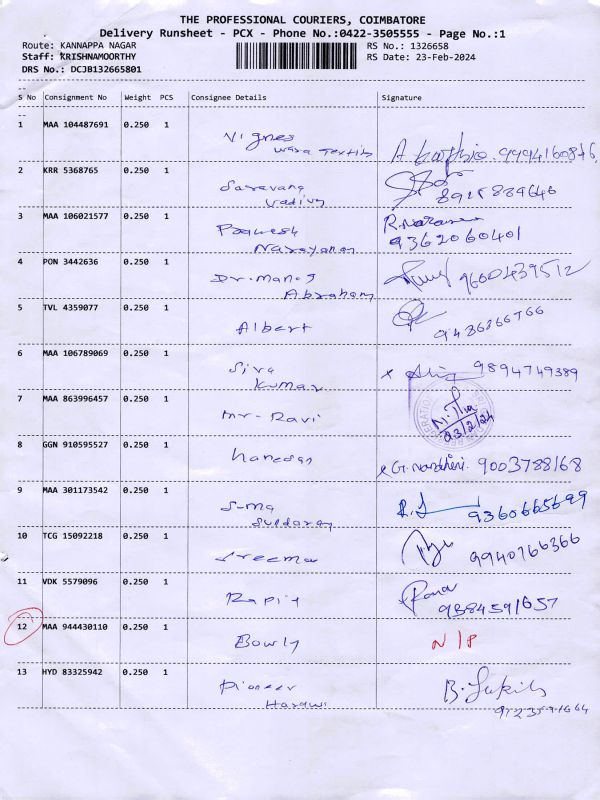 THE PROFESSIONAL COURIERS, COIMBATORE
Delivery Runsheet - PCX - Phone No.:0422-3505555 - Page No.:1
Route: KANNAPPA NAGAR RS No.: 1326658
Staff: KRISHNAMOORTHY RS Date: 23-Feb-2024
DRS No.: DCJB132665801
S No Consignment No Weight PCS Consignee Details Signature
1 MAA 104487691 0.250 1
Vignes
2 KRR 5368765 0.250 1
Saravana
Vadivu
3 MAA 106021577 0.250 1
Narayanan 9362060401
4 PON 3442636 0.250 1
Dr. Manoj 9600439512
Abraham
5 TVL 4359077 0.250 1
Albert
6 MAA 106789069 0.250 1
Siva 9894749389
Kumar
7 MAA 863996457 0.250 1
Mr. Ravi 23/2/24
8 GGN 910595527 0.250 1
9003788168
9 MAA 301173542 0.250 1
9360665699
10 TCG 15092218 0.250 1
9940766366
11 VDK 5579096 0.250 1
9384591657
12 MAA 944430110 0.250 1
Bowly N/P
13 HYD 83325942 0.250 1
Pioneer